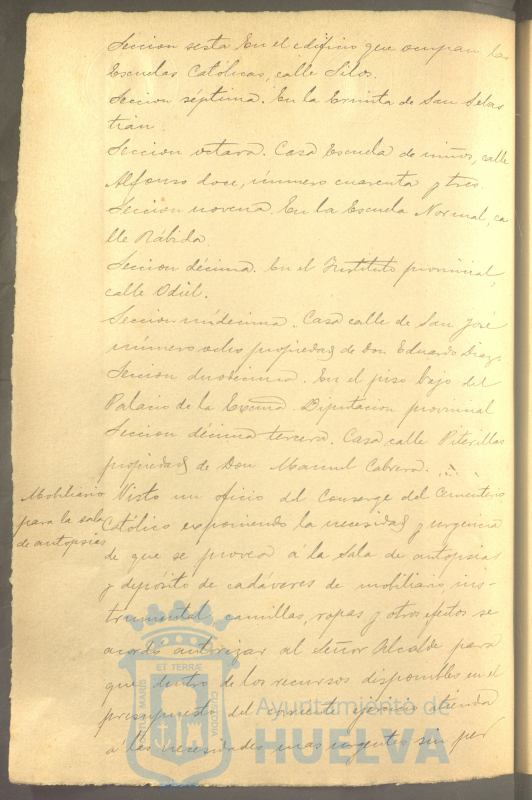 Seccion sesta En el edificio que ocupan las
Escuelas Católicas, calle Silos.
Seccion séptima. En la Ermita de San Sebas
tián.
Seccion octava. Casa Escuela de niños, calle
Alfonso doce, número cuarenta y tres.
Seccion novena. En la Escuela Normal, ca
lle Rábida
Seccion décima. En el Instituto provincial,
calle Odiel.
Seccion undécima. Casa calle de San José
número ocho propiedad de Don Eduardo Diaz.
Seccion duodécima. En el piso bajo del
Palacio de la Excma. Diputacion provincial
Seccion décima tercera. Casa calle Piterillas
propiedad de Don Manuel Cabrera.
Mobiliario
para la sala
de autopsias
Visto un oficio del Conserge del Cementerio
Católico exponiendo la necesidad y urgencia
de que se provea á la Sala de autopsias
y depósito de cadáveres de mobiliario, ins-
trumental, camillas, ropas y otros efectos se
acordó autorizar al Señor Alcalde para
que dentro de los recursos disponibles en el
presupuesto del corriente ejercicio atienda
á las necesidades mas urgentes sin per
PORTUS MARIS
ET TERRÆ
CUSTODIA
Ayuntamiento de
HUELVA